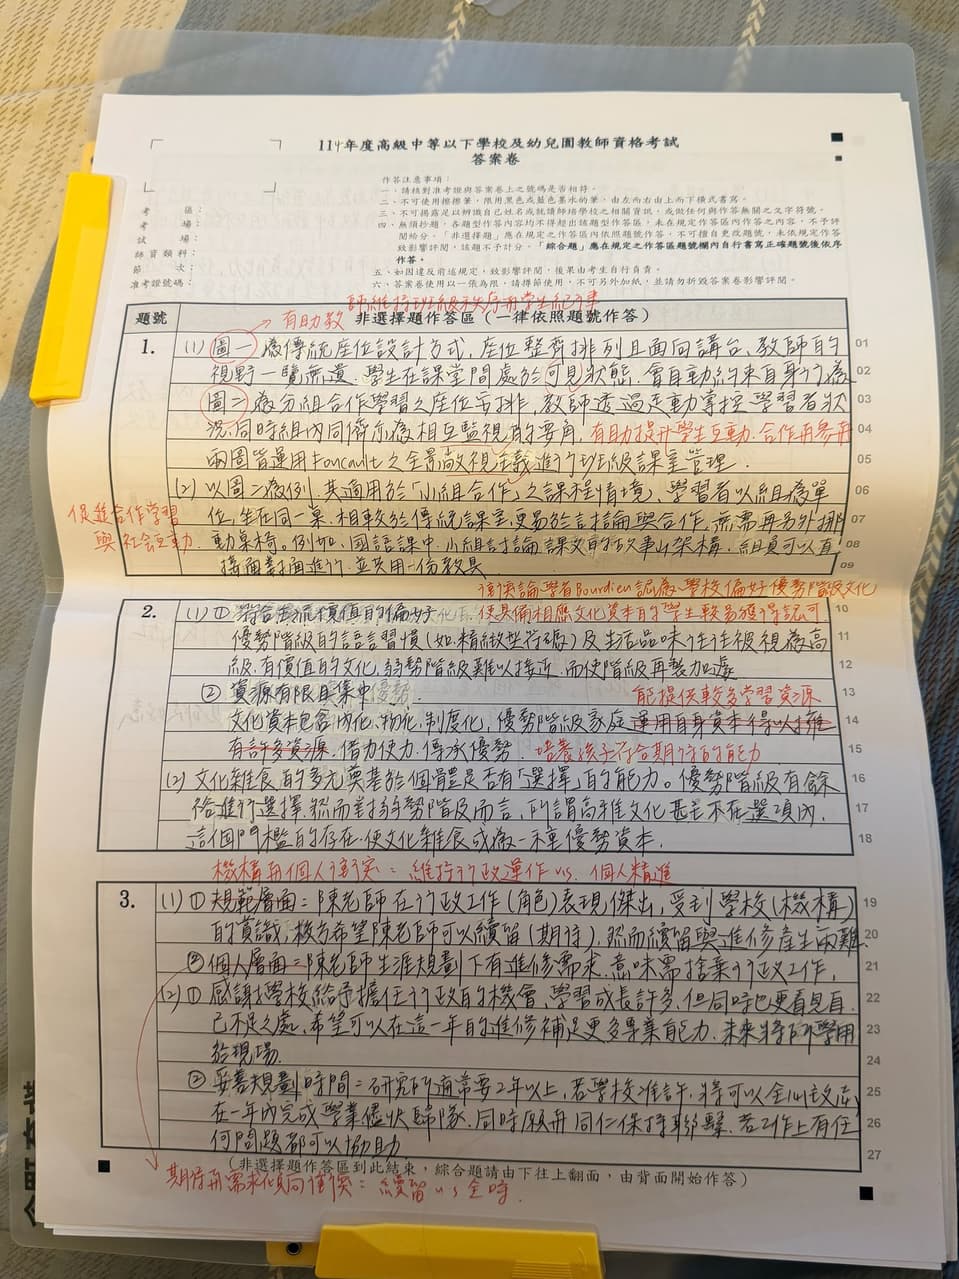 114年度高級中等以下學校及幼兒園教師資格考試
答案卷
作答注意事項：
一、請核對准考證與答案卷上之號碼是否相符。
二、不可使用擦擦筆，限用黑色或藍色墨水的筆，由左而右由上而下橫式書寫。
三、不可揭露足以辨識自己姓名或就讀師培學校之相關資訊，或做任何與作答無關之文字符號。
四、無須抄題，各題型作答內容均不得超出該題型作答區，未在規定作答區內作答之內容，不予評
閱給分。「非選擇題」應在規定之作答區內依照題號作答，不可擅自更改題號，未依規定作答
致影響評閱，該題不予計分。「綜合題」應在規定之作答區題號欄內自行書寫正確題號後依序
作答。
五、如因違反前述規定，致影響評閱，後果由考生自行負責。
六、答案卷使用以一張為限，請撙節使用，不可另外加紙，並請勿折毀答案卷影響評閱。
考區：
考場：
試場：
師資類科：
節次：
准考證號碼：
師維持班級秩序與學生紀律
有助教
題號 非選擇題作答區（一律依照題號作答）
1. (1) 圖一為傳統座位設計方式，座位整齊排列且面向講台，教師的 01
視野一覽無遺，學生在課堂間處於可見狀態，會自動約束自身行為 02
圖二為分組合作學習之座位安排，教師透過走動掌控學習者狀 03
況，同時組內同儕亦為相互監視的要角，有助提升學生互動、合作與參與 04
兩圖皆運用Foucault之全景敞視主義進行班級課室管理。 05
(2) 以圖二為例，其適用於「小組合作」之課程情境，學習者以組為單 06
促進合作學習
與社會互動
位，坐在同一桌，相較於傳統課室，更易於討論與合作，無需再另外挪 07
動桌椅。例如，國語課中，小組討論課文的故事山架構，組員可以直 08
接面對面進行，並共用一份教具 09
衝突論學者Bourdieu認為，學校偏好優勢階級文化
2. (1) ① 符合主流價值的偏好 使具備相應文化資本的學生較易獲得認可 10
優勢階級的語言習慣(如：精緻型符碼)及生活品味往往被視為高 11
級、有價值的文化，弱勢階級難以接近，而使階級再製加遽 12
② 資源有限且集中優勢 能提供較多學習資源 13
文化資本包含內化、物化、制度化，優勢階級家庭運用自身資本得以擁 14
有許多資源，借力使力，傳承優勢。培養孩子符合期待的能力 15
(2) 文化雜食的多元奠基於個體是否有「選擇」的能力。優勢階級有餘 16
裕進行選擇，然而對弱勢階段而言，所謂高雅文化甚至不在選項內， 17
這個門檻的存在，使文化雜食成為一種優勢資本。 18
機構與個人衝突：維持行政運作 vs. 個人精進
3. (1) ① 規範層面：陳老師在行政工作(角色)表現傑出，受到學校(機構) 19
的賞識，校方希望陳老師可以續留(期待)，然而續留與進修產生兩難。 20
② 個人層面：陳老師生涯規劃下有進修需求，意味需捨棄行政工作。 21
(2) ① 感謝學校給予擔任行政的機會，學習成長許多，但同時也更看見自 22
己不足之處，希望可以在這一年的進修補足更多專業能力，未來將所學用 23
於現場。 24
② 妥善規劃時間：研究所通常要2年以上，若學校准許，將可以全心投在 25
在一年內完成學業儘快歸隊，同時願與同仁保持聯繫，若工作上有任 26
何問題都可以協助 27
(非選擇題作答區到此結束，綜合題請由下往上翻面，由背面開始作答)
期待與需求傾向衝突：續留 vs 全時。